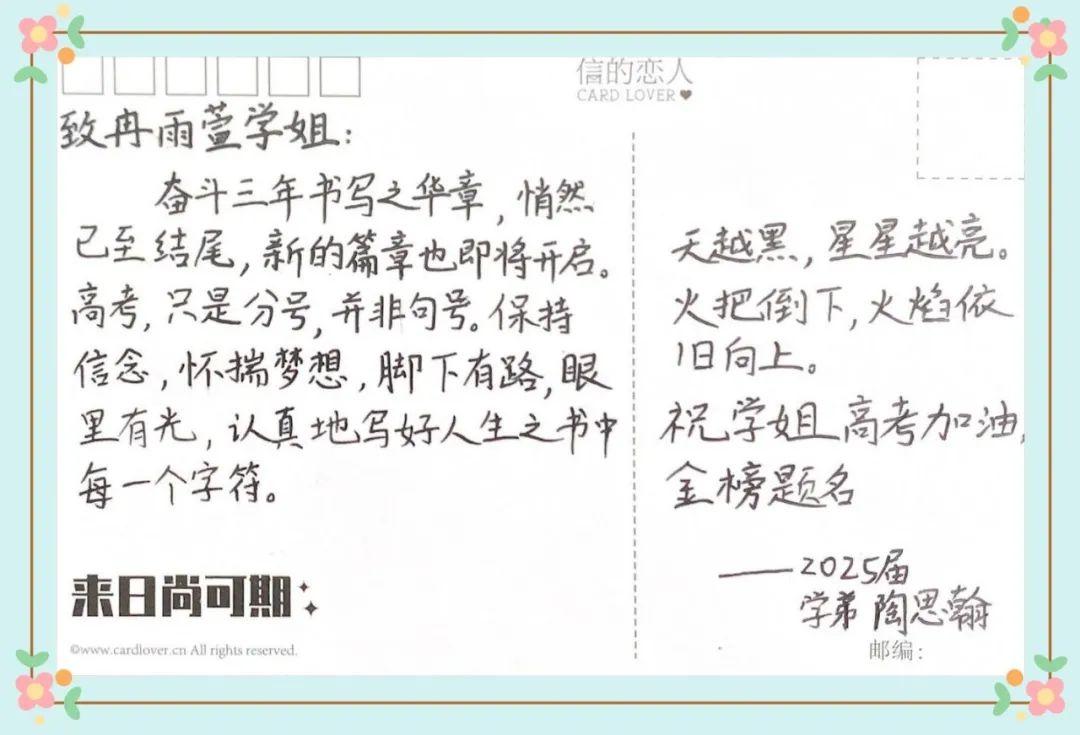 信的恋人
CARD LOVER
致冉雨萱学姐:
奋斗三年书写之华章,悄然
已至结尾,新的篇章也即将开启。
高考,只是分号,并非句号。保持
信念,怀揣梦想,脚下有路,眼
里有光,认真地写好人生之书中
每一个字符。
来日尚可期
©www.cardlover.cn All rights reserved.
天越黑,星星越亮。
火把倒下,火焰依
旧向上。
祝学姐高考加油,
金榜题名
——2025届
学弟 陶思翰
邮编: